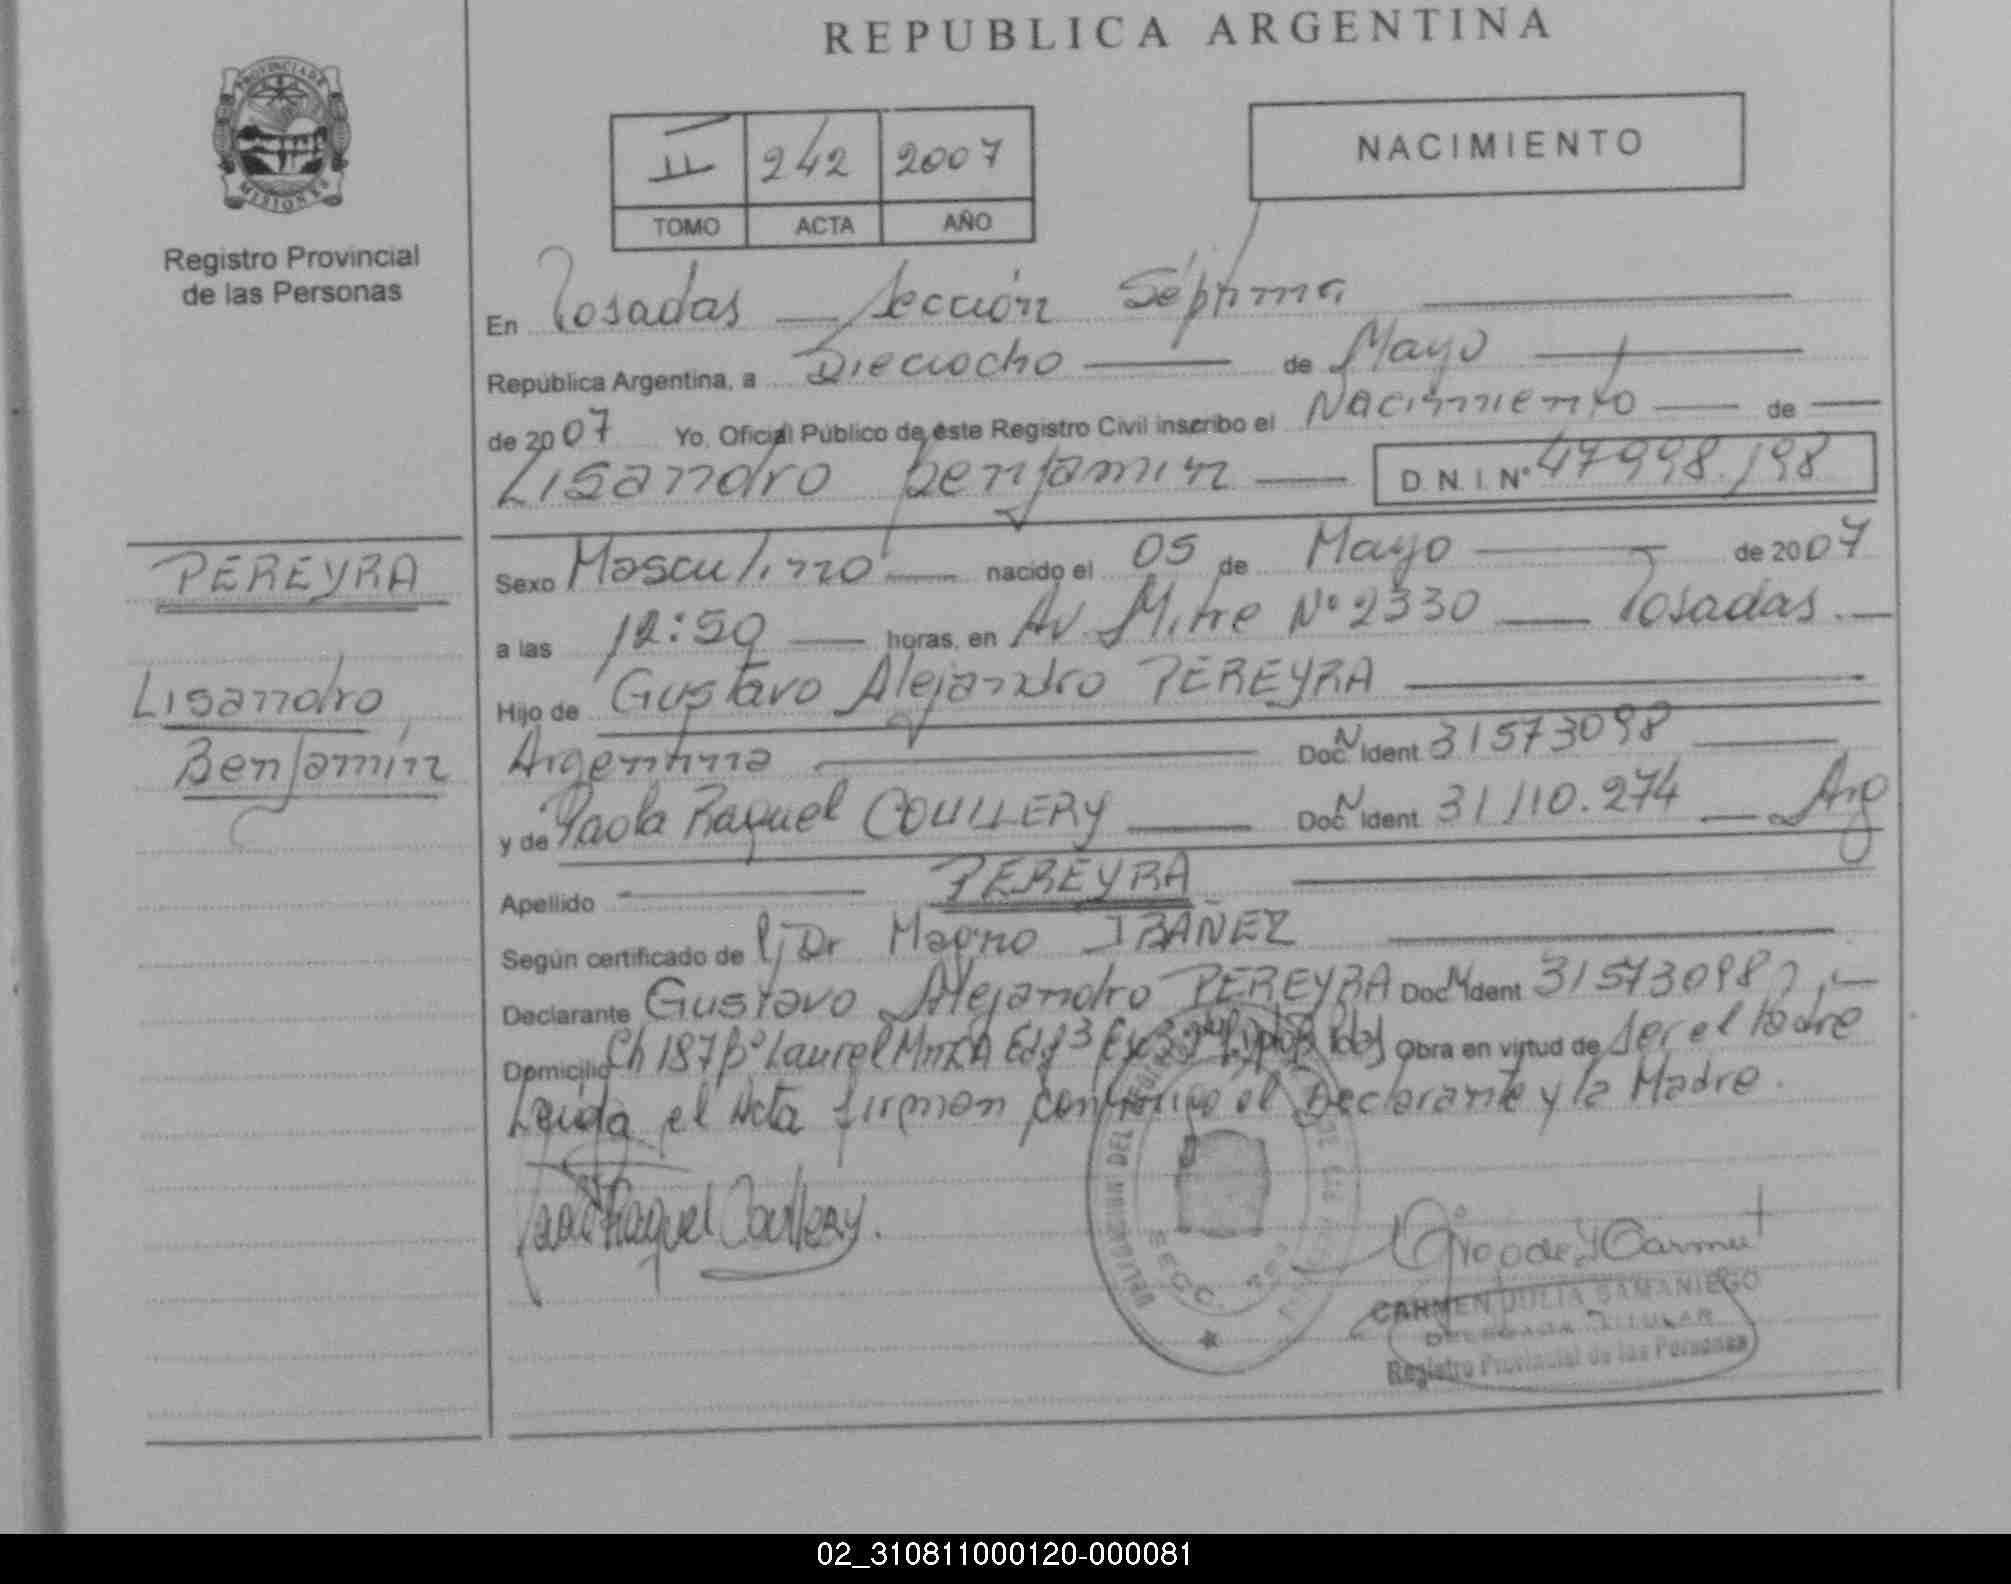 REPUBLICA ARGENTINA
PROVINCIA DE
MISIONES
Registro Provincial
de las Personas
II 242 2007
TOMO ACTA AÑO
NACIMIENTO
En Posadas Sección Séptima
República Argentina, a Dieciocho de Mayo
de 2007 Yo, Oficial Público de éste Registro Civil inscribo el Nacimiento de
Lisandro Benjamin D.N.I. Nº 47998.198
PEREYRA
Lisandro
Benjamín
Sexo Masculino nacido el 05 de Mayo de 2007
a las 12:50 horas, en Av. Mitre Nº 2330 Posadas.
Hijo de Gustavo Alejandro PEREYRA
Argentina Doc. N Ident 31573098
y de Paola Raquel COULLERY Doc. N Ident 31110.274 Arg
Apellido PEREYRA
Según certificado de Dr Magno IBAÑEZ
Declarante Gustavo Alejandro PEREYRA Doc. N Ident 31573098
Domicilio Ch 187 Bº Laurel Obra en virtud de Ser el Padre
Leída el Acta firman conmigo el Declarante y la Madre.
Paola Raquel Coullery.
SECC.
CARMEN JULIA SAMANIEGO
DELEGADA TITULAR
Registro Provincial de las Personas
02_310811000120-000081